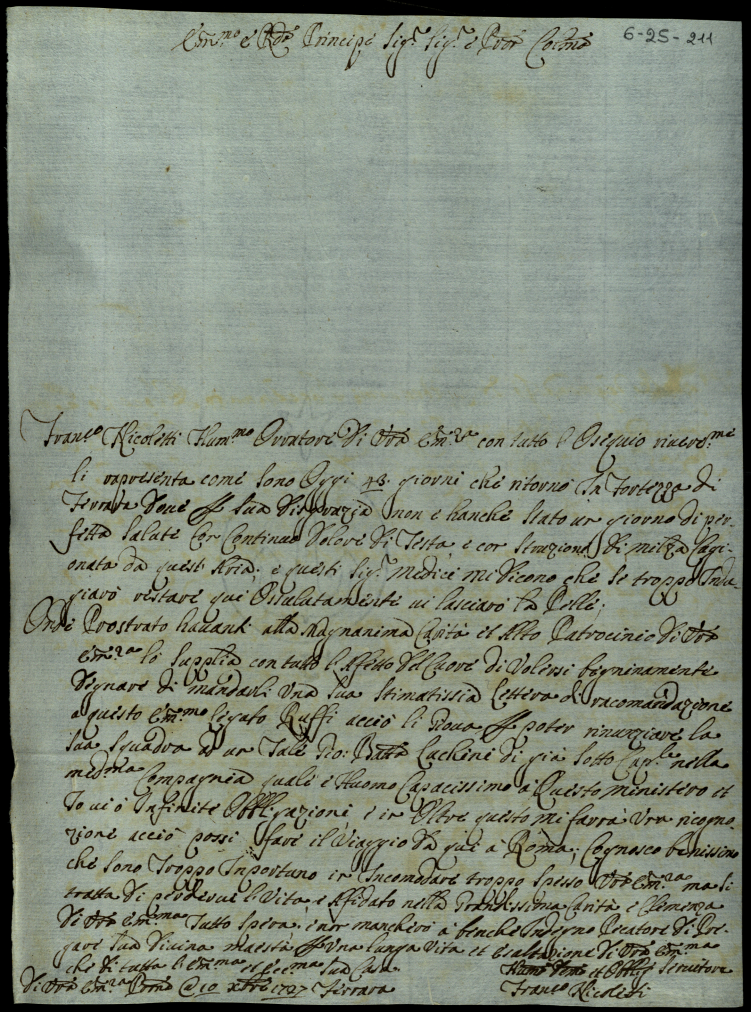 6-25-211
Em.mo e R.do Principe Sig.r Sig.r e Pron Colmo
Franc.o Nicoletti Hum.mo Orratore di Vrã Em.za con tutto l Osequio river.me
li rapresenta come sono Oggi 43 giorni che ritornò In fortezza di
Ferrara dove p sua disgrazzia non e hanche stato un giorno di per-
fetta salute Cor Continuo dolore di Testa, e cor struzione di milza Cagi-
onata da quest Aria; e questi Sig.ri Medici mi dicono che se troppo Indu-
giarò restare qui Assulutamente vi lasciarò la Pelle;
Onde Prostrato havanti alla Magnanima Carità et Alto Patrocinio di Vrã
Em.za lo supplia con tutto l Afetto del Cuore di Volersi begninamente
degnare di mandarli Una Sua Stimatissia Lettera di racomandazione
a questo Em.mo legato Ruffi acciò li Giova p poter rinunziare la
sua squadra a un Tale Gio: Batta Lachini di già Sotto Cap.le nella
med.ma Compagnia quale e Huomo Capacissimo a Questo ministero et
Io vi ò Infinite Obbligazioni e in Oltre questo mi farrà Una ricogno-
zione acciò possi fare il Viaggio da qui a Roma; Cognosco benissimo
che sono Troppo Inportuno in Incomodare troppo spesso Vrã Em.za ma si
tratta di perdervi l Vita e Afidato nella Grandissima Carità e Clemenza
di Vrã Em.ma Tutto spera, e nor mancherò a benche Indegno Pecatore di Pre-
gare Sua Divina maestà p Una lunga Vita et Esaltazione di Vrã Em.ma
che di tutta l Em.ma et Ecc.ma Sua Casa
di Vrã Em.za @ 10 xbre 1727 Ferrara
Humo et Obblig Servitore
Franc.o Nicoletti